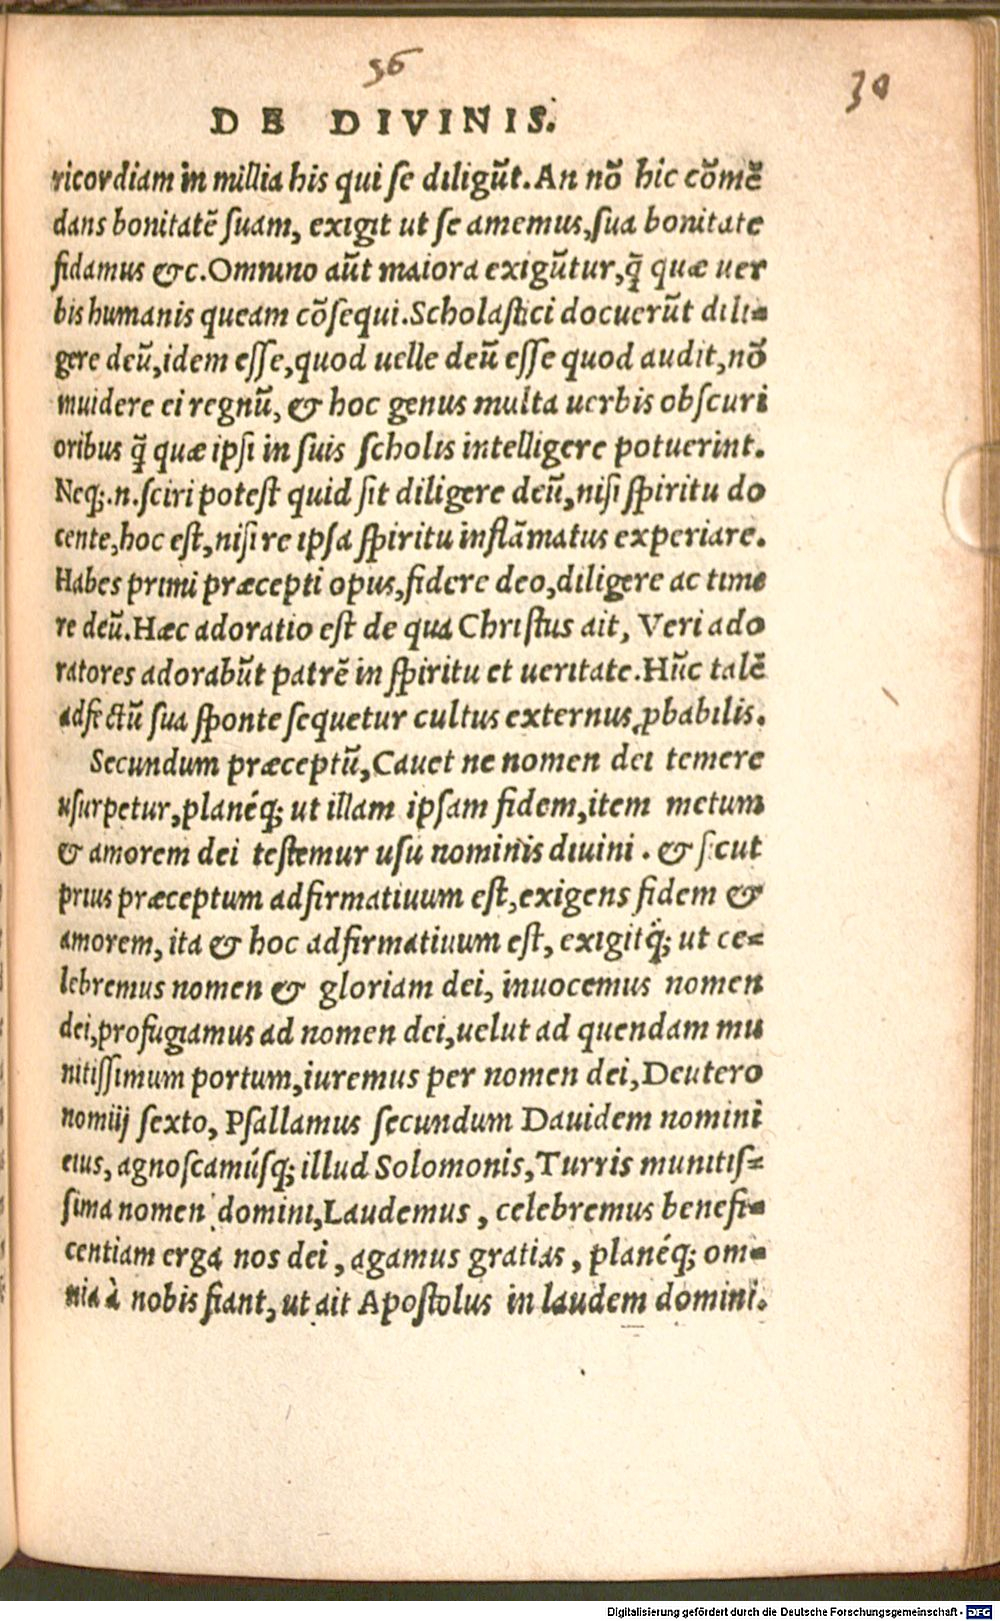 36
30
DE DIVINIS.
ricordiam in millia his qui se diligũt. An nõ hic cõmẽ
dans bonitatẽ suam, exigit ut se amemus, sua bonitate
fidamus &c. Omnino aũt maiora exigũtur, q̃ quæ uer
bis humanis queam cõsequi. Scholastici docuerũt dili=
gere deũ, idem esse, quod uelle deũ esse quod audit, nõ
inuidere ei regnũ, & hoc genus multa uerbis obscuri
oribus q̃ quæ ipsi in suis scholis intelligere potuerint.
Neq;.n.sciri potest quid sit diligere deũ, nisi spiritu do
cente, hoc est, nisi re ipsa spiritu inflãmatus experiare.
Habes primi præcepti opus, fidere deo, diligere ac time
re deũ. Hæc adoratio est de qua Christus ait, Veri ado
ratores adorabũt patrẽ in spiritu et ueritate. Hũc talẽ
adfectũ sua sponte sequetur cultus externus ꝓbabilis.
Secundum præceptũ, Cauet ne nomen dei temere
usurpetur, planéq; ut illam ipsam fidem, item metum
& amorem dei testemur usu nominis diuini. & sicut
prius præceptum adfirmatiuum est, exigens fidem &
amorem, ita & hoc adfirmatiuum est, exigitq́; ut ce=
lebremus nomen & gloriam dei, inuocemus nomen
dei, profugiamus ad nomen dei, uelut ad quendam mu
nitissimum portum, iuremus per nomen dei, Deutero
nomiij sexto, Psallamus secundum Dauidem nomini
eius, agnoscamúsq; illud Solomonis, Turris munitis=
sima nomen domini, Laudemus, celebremus benefi=
centiam erga nos dei, agamus gratias, planéq; om=
nia à nobis fiant, ut ait Apostolus in laudem domini.
Digitalisierung gefördert durch die Deutsche Forschungsgemeinschaft - DFG